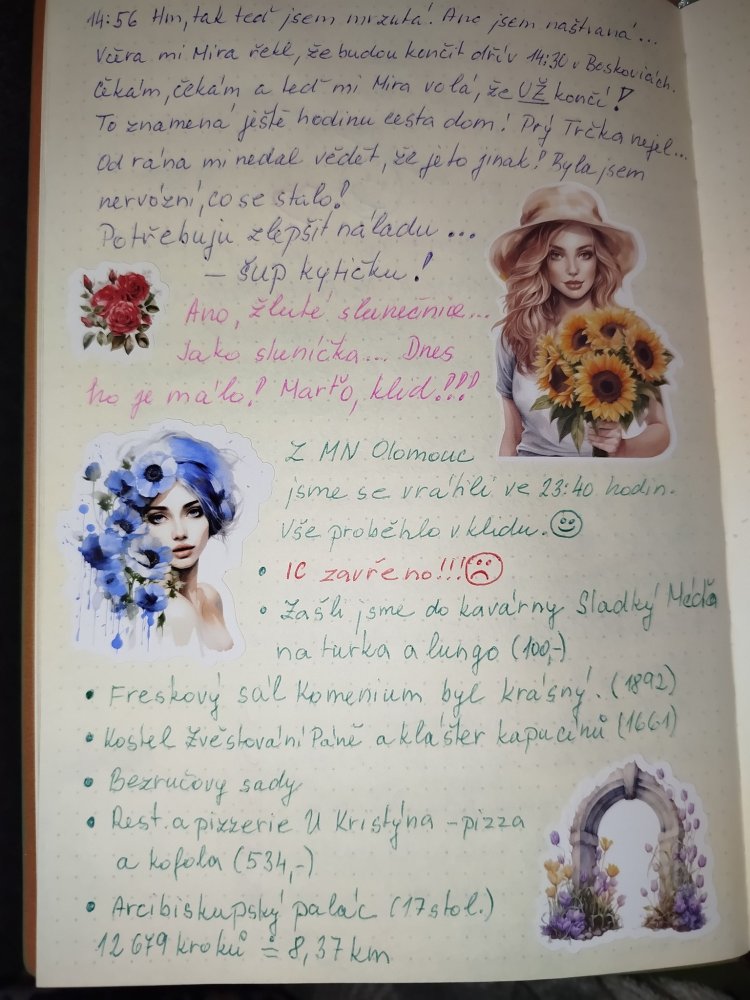 14:56 Hm, tak teď jsem mrzutá! Ano jsem naštvaná...
Včera mi Mira řekl, že budou končit dřív 14:30 v Boskovicích.
Čekám, čekám a teď mi Mira volá, že UŽ končí!
To znamená ještě hodinu cesta domů! Prý Trčka nejel...
Od rána mi nedal vědět, že je to jinak! Byla jsem
nervózní, co se stalo!
Potřebuju zlepšit náladu ...
– šup kytičku!
Ano, žluté slunečnice...
Jako sluníčka... Dnes
ho je málo! Marťo, klid!!!
Z MN Olomouc
jsme se vrátili ve 23:40 hodin.
Vše proběhlo v klidu. ☺
• IC zavřeno!!! ☹
• Zašli jsme do kavárny Sladký Méďa
na turka a lungo (100,-)
• Freskový sál Komenium byl krásný. (1892)
• Kostel Zvěstování Páně a klášter kapucínů (1661)
• Bezručovy sady
• Rest. a pizzerie U Kristýna - pizza
a kofola (534,-)
• Arcibiskupský palác (17 stol.)
12 679 kroků ≐ 8,37 km